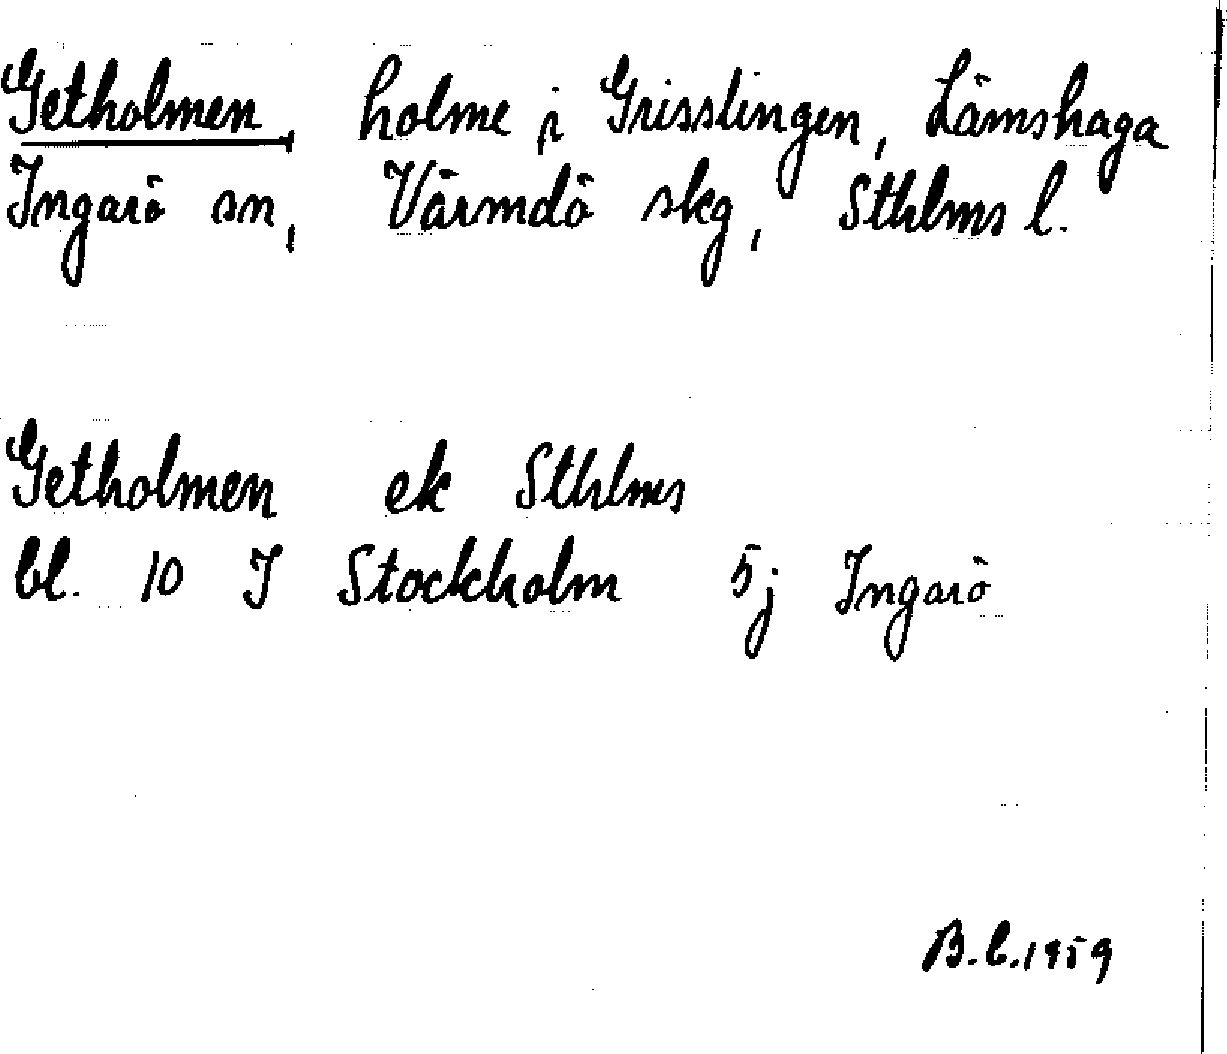 Getholmen, holme i Grisslingen, Lämshaga
Ingarö sn, Värmdö skg, Sthlms l.
Getholmen ek Sthlms
bl. 10 I Stockholm 5j Ingarö
B.C.1959